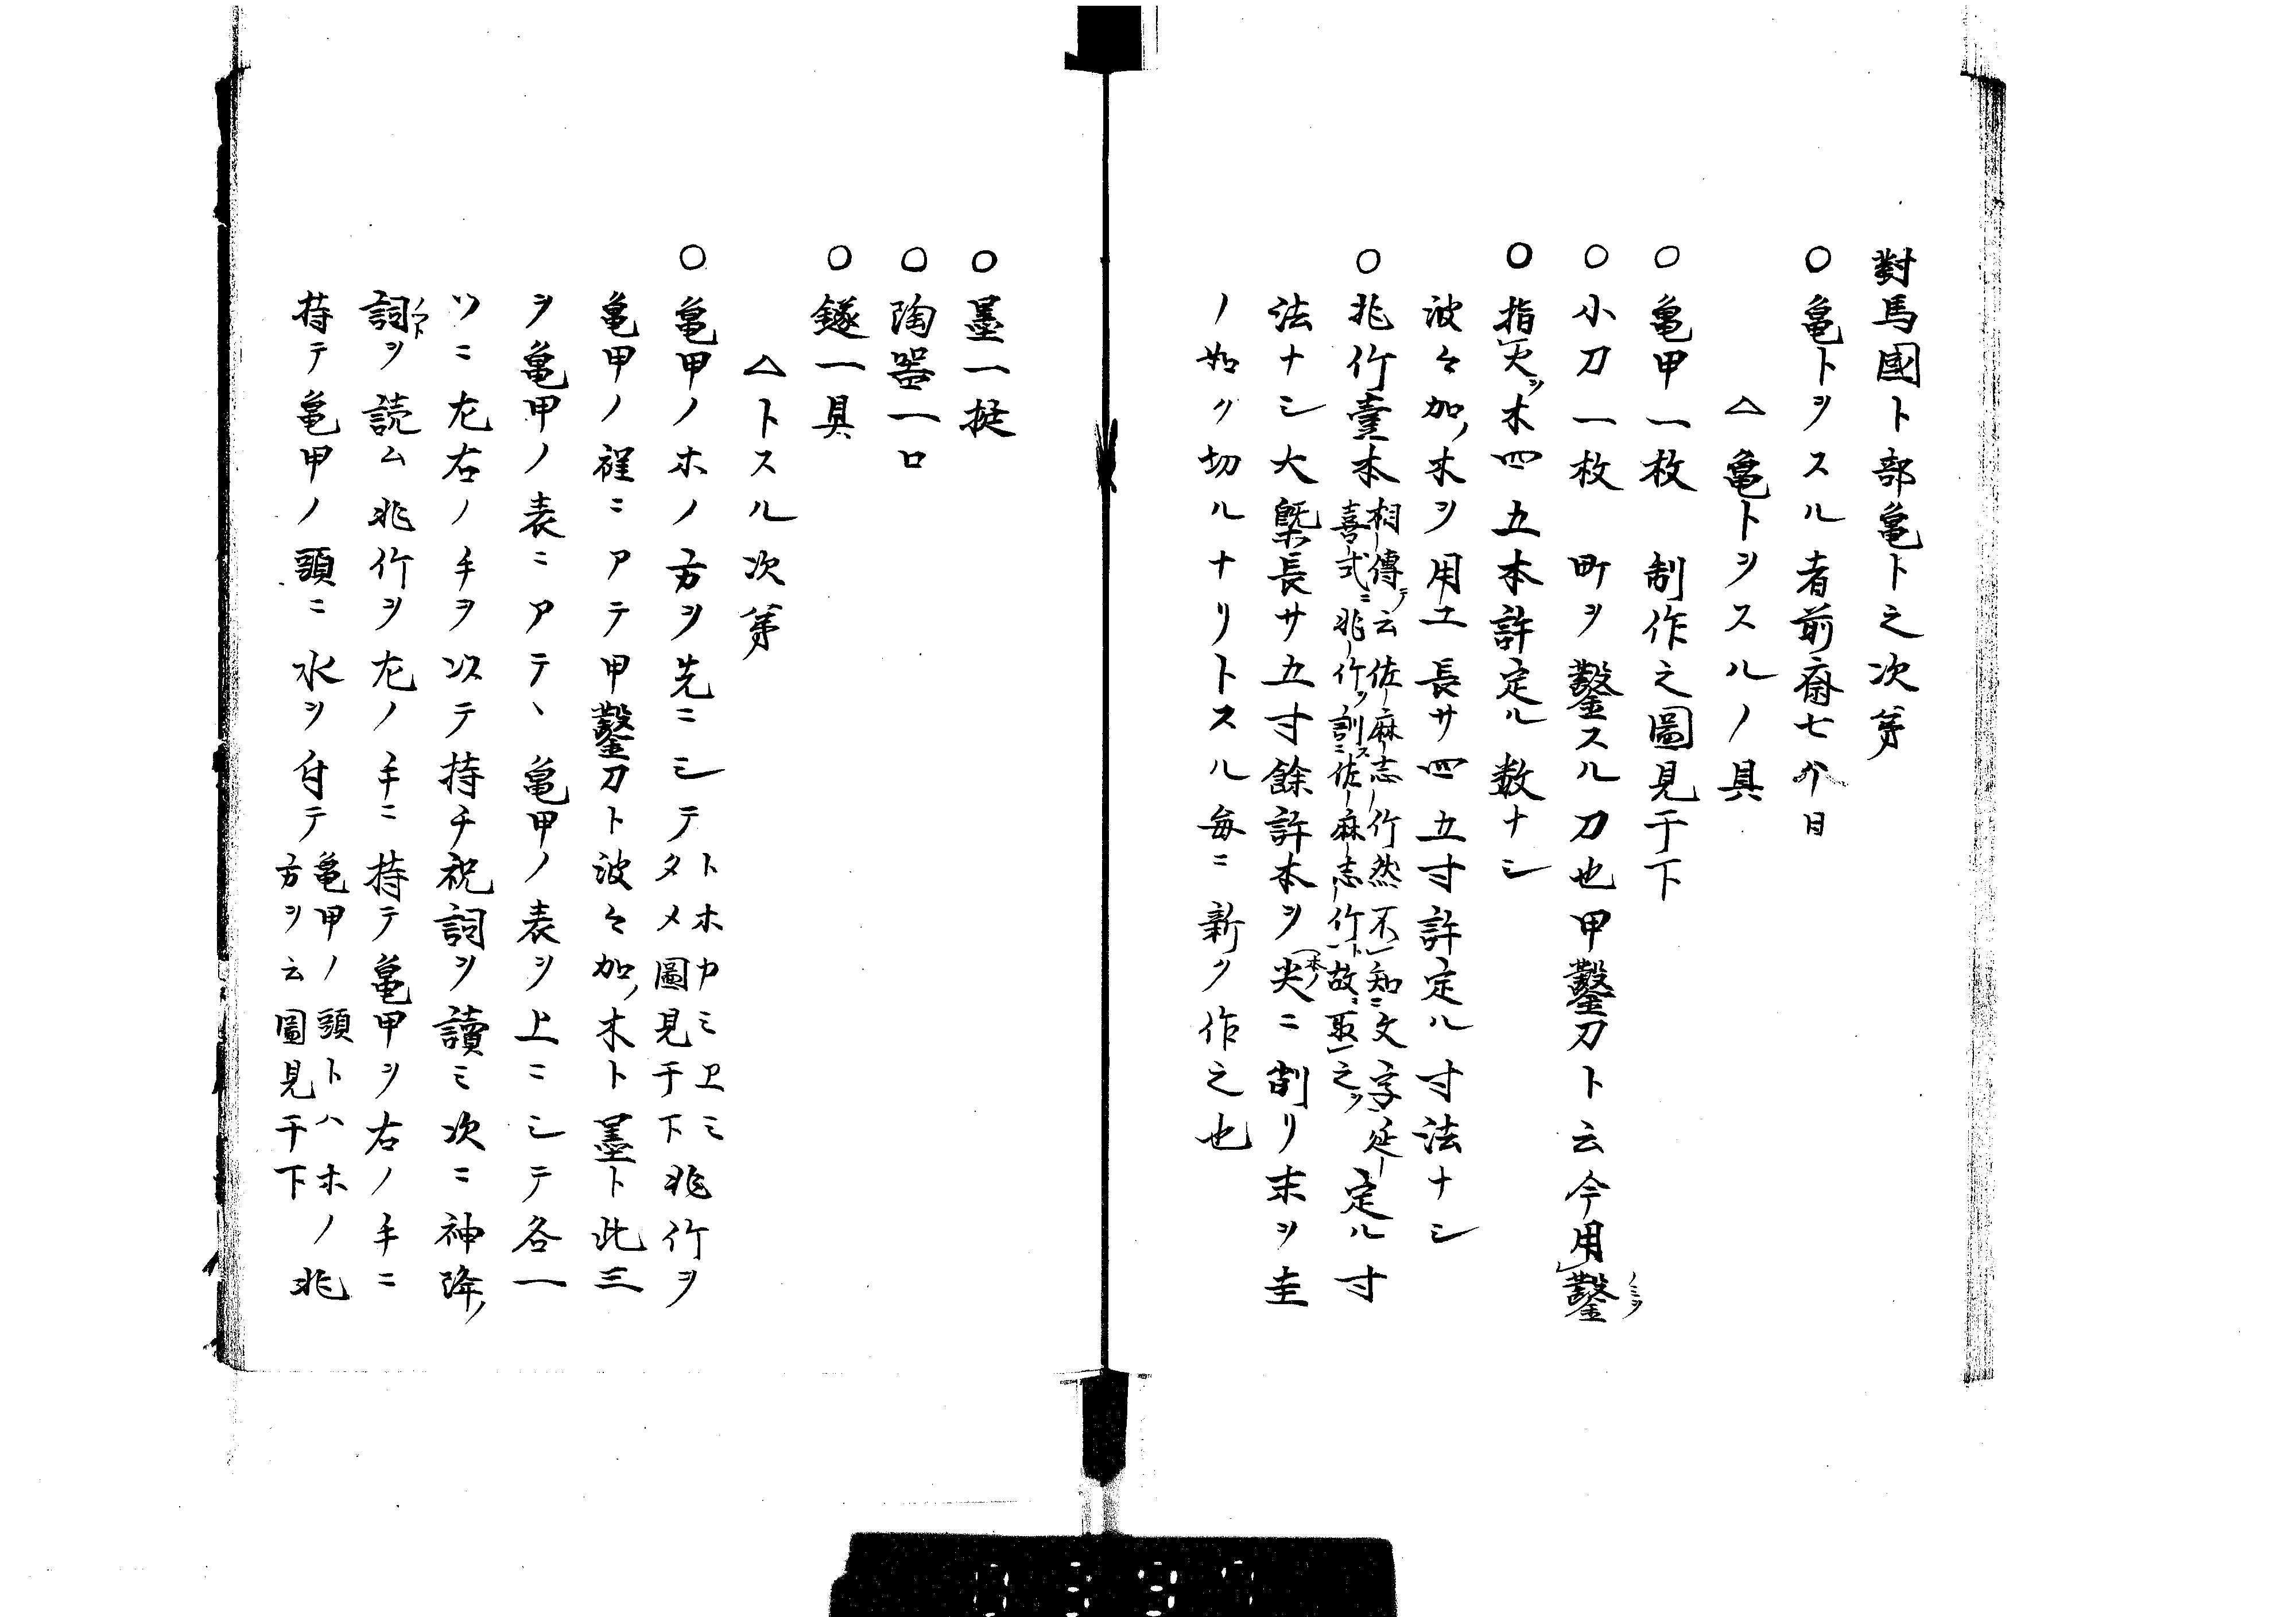 對馬國卜部亀卜之次第
○亀卜ヲスル者前齋七个日
△亀卜ヲスルノ具
○亀甲一枚 制作之圖見于下
○小刀一枚 町ヲ鑿スル刀也甲鑿刀ト云今用鑿ノミヲ
○指火ヲ木四五本許定ル数ナシ
波々加ノ木ヲ用ユ長サ四五寸許定ル寸法ナシ
○兆竹壹本 相傳テ云佐麻志竹然不知ニ文字延
喜式ニ兆竹ヲ訓ニス佐麻志竹ト故ニ取之ヲ 定ル寸
法ナシ大槩長サ五寸餘許本ヲ尖ニ削リ末ヲ圭
ノ如ク切ルナリトスル毎ニ新ク作之也
○墨一挺
○陶器一口
○鐩一具
△卜スル次第
○亀甲ノホノ方ヲ先ニシテ トホカミヱミ
タメ圖見于下 兆竹ヲ
亀甲ノ裡ニアテ甲鑿刀ト波々加ノ木ト墨ト此三
ヲ亀甲ノ表ニアテヽ亀甲ノ表ヲ上ニシテ各一
ツニ左右ノ手ヲ以テ持チ祝詞ヲ讀ミ次ニ神降ノ
詞ヲ読ム兆竹ヲ左ノ手ニ持テ亀甲ヲ右ノ手ニ
持テ亀甲ノ頭ニ水ヲ付テ 亀甲ノ頭トハホノ兆
方ヲ云圖見于下